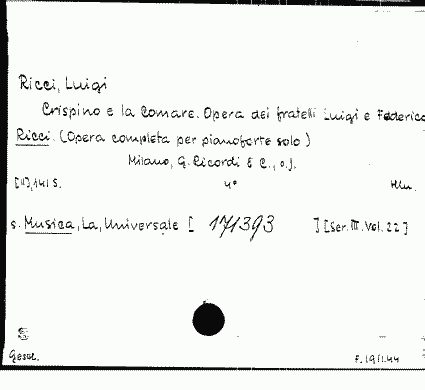 Ricci, Luigi
Crispino e la Comare. Opera dei fratelli Luigi e Federico
Ricci. (Opera completa per pianoforte solo)
Milano, G. Ricordi & C., o.J.
[II], 141 S. 4° Hlw.
s. Musica, La, Universale [ 171393 ] [Ser. III. Vol. 22]
Gesch. F. 19/1.44